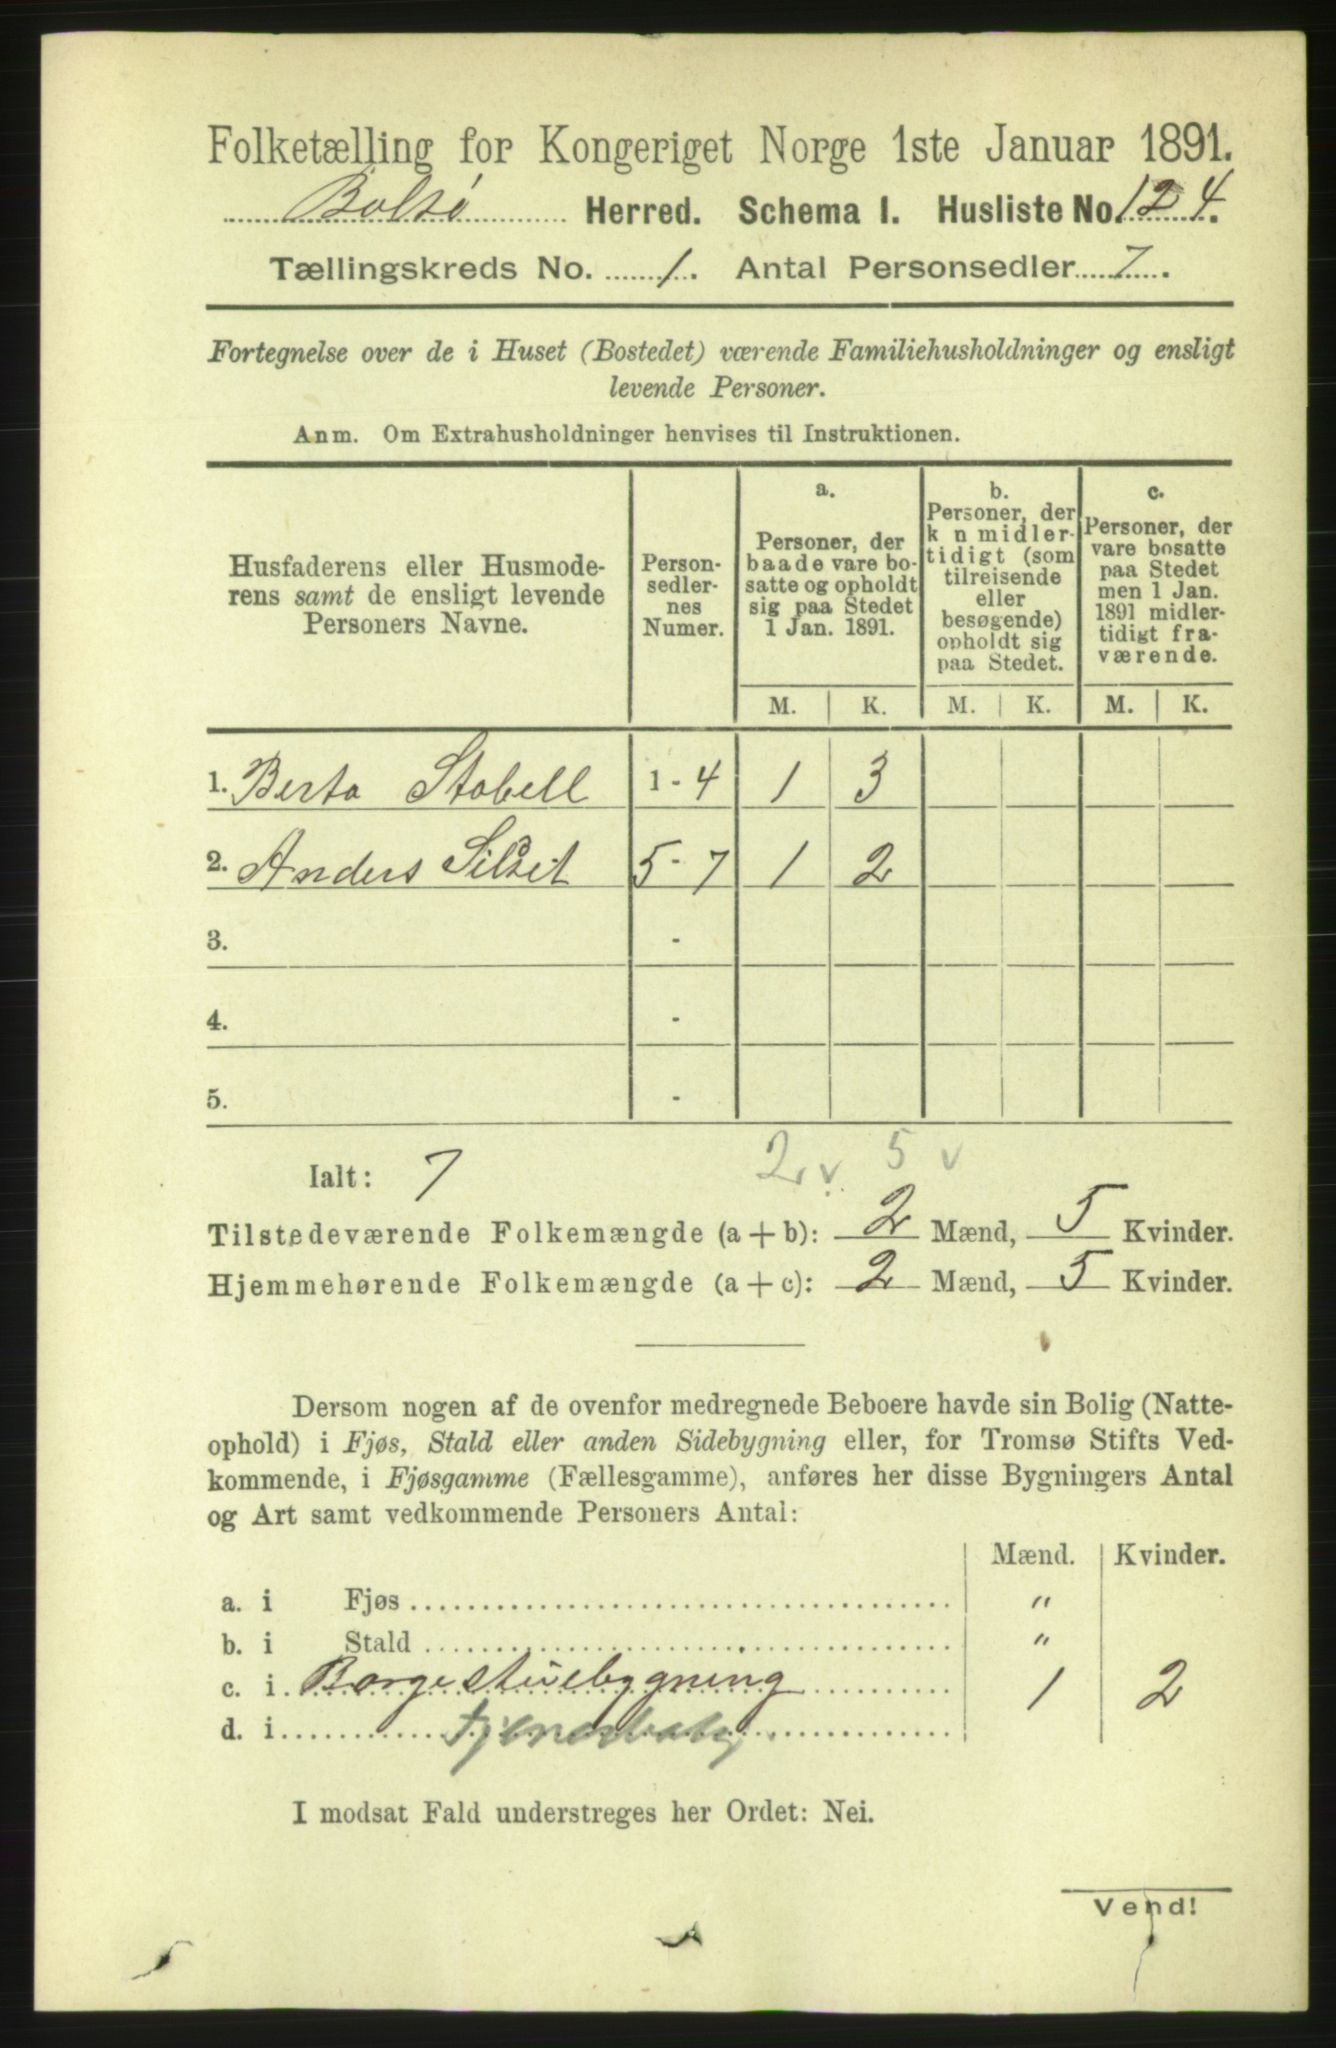 Folketælling for Kongeriget Norge 1ste Januar 1891.
Bolsø Herred. Schema I. Husliste No. 124.
Tællingskreds No. 1. Antal Personsedler 7.
Fortegnelse over de i Huset (Bostedet) værende Familiehusholdninger og ensligt
levende Personer.
Anm. Om Extrahusholdninger henvises til Instruktionen.
Husfaderens eller Husmode-
rens samt de ensligt levende
Personers Navne.
Person-
sedler-
nes
Numer.
a.
Personer, der
baade vare bo-
satte og opholdt
sig paa Stedet
1 Jan. 1891.
b.
Personer, der
k n midler-
tidigt (som
tilreisende
eller
besøgende)
opholdt sig
paa Stedet.
c.
Personer, der
vare bosatte
paa Stedet
men 1 Jan.
1891 midler-
tidigt fra-
værende.
M. K. M. K. M. K.
1. Berta Stabell 1 - 4 1 3
2. Anders Silset 5 - 7 1 2
3. -
4. -
5. -
2 v 5 v
Ialt: 7
Tilstedeværende Folkemængde (a + b): 2 Mænd, 5 Kvinder.
Hjemmehørende Folkemængde (a + c): 2 Mænd, 5 Kvinder.
Dersom nogen af de ovenfor medregnede Beboere havde sin Bolig (Natte-
ophold) i Fjøs, Stald eller anden Sidebygning eller, for Tromsø Stifts Ved-
kommende, i Fjøsgamme (Fællesgamme), anføres her disse Bygningers Antal
og Art samt vedkommende Personers Antal:
Mænd. Kvinder.
a. i Fjøs "
b. i Stald "
c. i Borgestuebygning 1 2
d. i
I modsat Fald understreges her Ordet: Nei.
Vend!